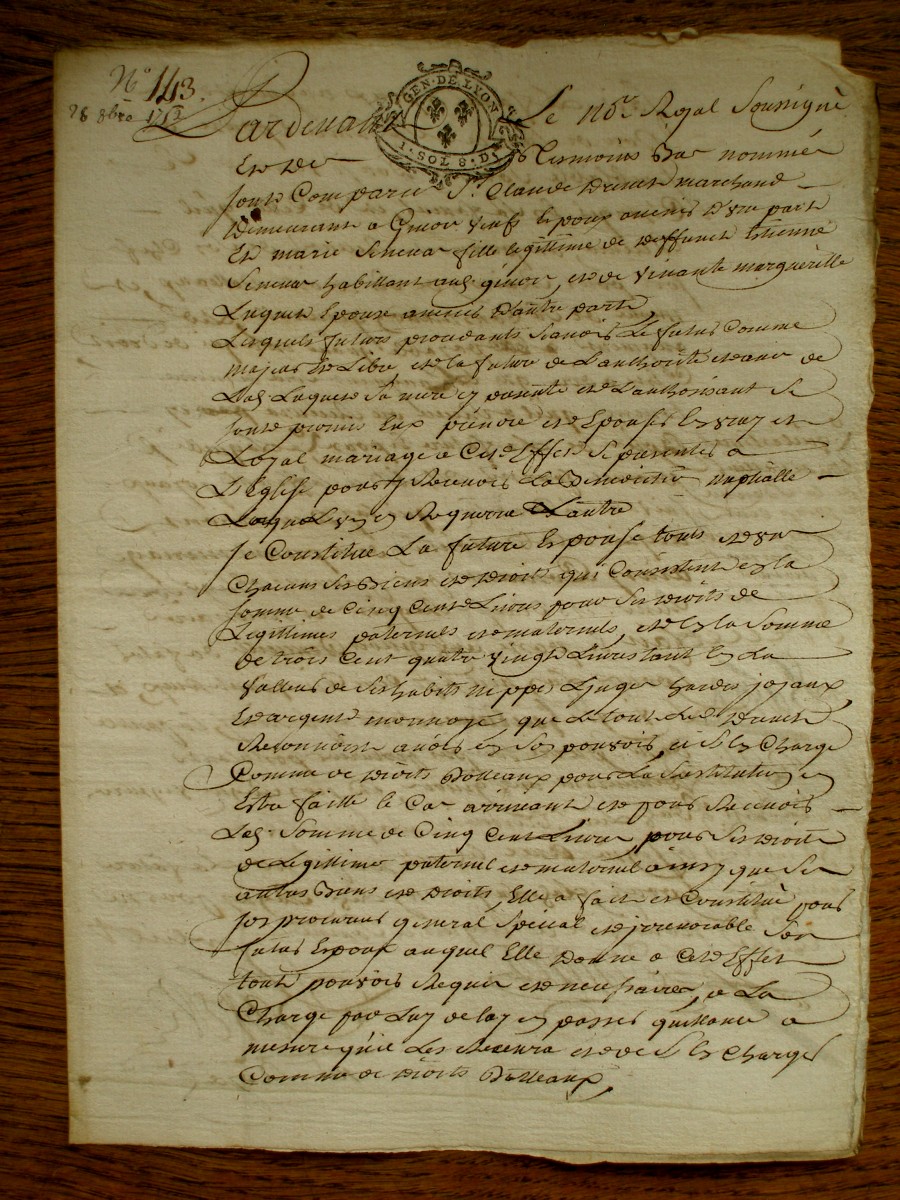 N° 143.
28 8bre 1713
GEN·DE·LYON
1·SOL 8·D
Pardevant Le No.re Royal Soussigné
Et des Tesmoins Bas nommés
sont Comparu Sr. Claude marchand
Demeurant a Givor veuf Epoux avenir D'une part
Et marie Seneva fille Legittime de Deffunct Etienne
Seneva habittant aud. givor, et de vivante marguerille
Luquet Epouse avenir D'autre part
Lesquels futurs procedants Sçavoir Le futur Comme
majeur et Libre, et la future de L'authorité et avis de
Lad. Luquet Sa mere icy presente et L'authorisant Se
sont promis Eux prendre et Epouser En vray et
Loyal mariage a Cet Effet Se presenter a
L'Eglise pour y Recevoir La Benediction nuptialle
Lorsque L'un En Requerra L'autre
Se Constitue La future Epouse tous et un
Chacuns Ses Biens et Droits qui Consistent En la
somme de Cinq Cent Livres pour Ses Droits de
Legittimes paternels et maternels, et En la Somme
de trois Cent quatre vingt Livres tant En La
valleur de Ses habits nippes Linges hardes joyaux
Et argent monnoyé que Le tout Led.
Reconnoist avoir En Son pouvoir, et S'En Charge
Comme de Droits Dotteaux pour La Restitution En
Estre faitte le Cas arrivant et pour Recevoir
Lad. Somme de Cinq Cent Livres, pour Ses Droits
de Legittimes paternel et maternel ainsy que Ses
autres Biens et Droits, Elle a fait et Constitué pour
Son procureur general Special et irrevocable Son
futur Epoux auquel Elle Donne a Cet Effet
tout pouvoir Requis et necessaire, a La
Charge par Luy de Luy En passer quittance a
mesure qu'il Les Recevra et de S'En Charger
Comme de Droits Dotteaux,